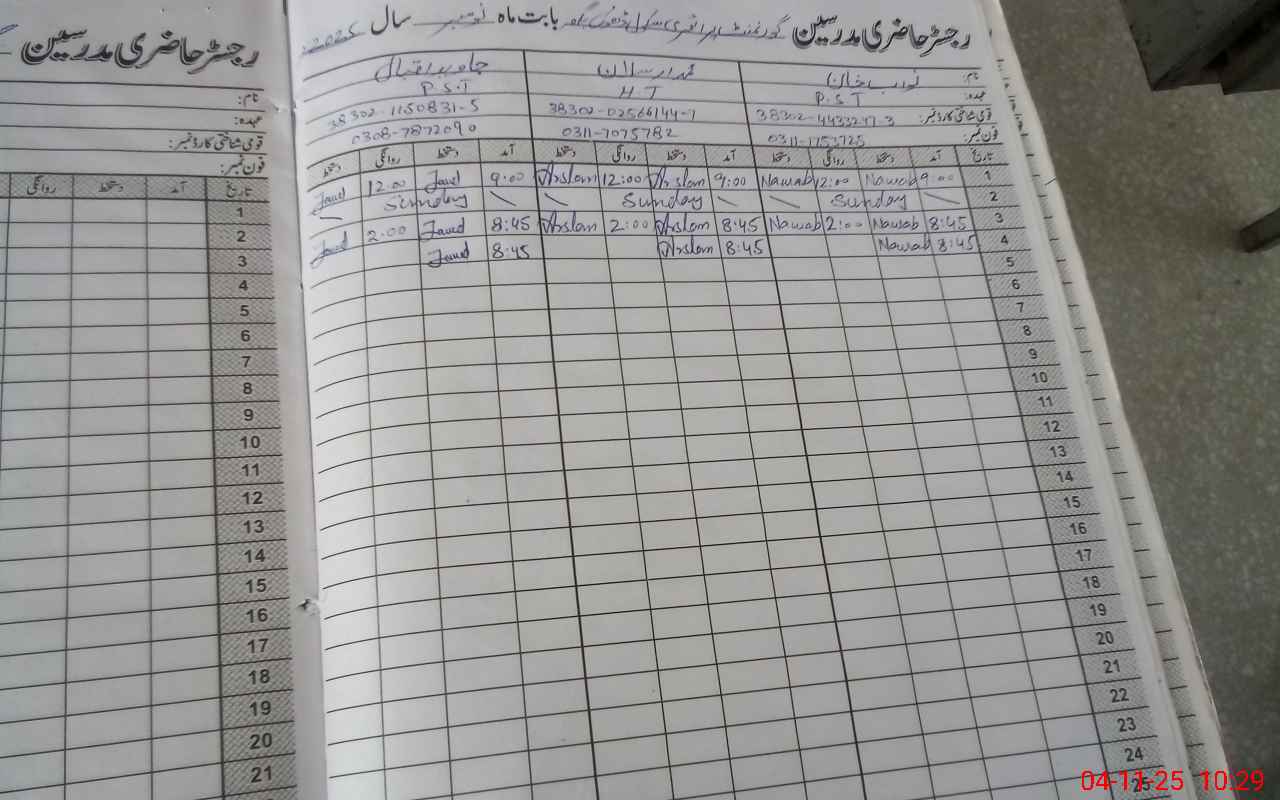 رجسٹر حاضری مدرسین گورنمنٹ پرائمری سکول بابت ماہ نومبر سال 2025
نام: نواب خان محمد ارسلان جاوید اقبال
عہدہ: P.S.T H.T P.S.T
قومی شناختی کارڈ نمبر: 38302-4433247-3 38302-02566144-7 38302-1150831-5
فون نمبر: 0311-1753725 0311-7075782 0308-7872090
تاریخ آمد دستخط روانگی دستخط آمد دستخط روانگی دستخط آمد دستخط روانگی دستخط
1 9:00 Nawab 12:00 Nawab 9:00 Arslan 12:00 Arslan 9:00 Javed 12.00 Javed
2 Sunday Sunday Sunday
3 8:45 Nawab 2:00 Nawab 8:45 Arslan 2:00 Arslan 8:45 Javed 2.00 Javed
4 8:45 Nawab 8:45 Arslan 8:45 Javed
5
6
7
8
9
10
11
12
13
14
15
16
17
18
19
20
21
22
23
24
25
رجسٹر حاضری مدرسین
نام:
عہدہ:
قومی شناختی کارڈ نمبر:
فون نمبر:
تاریخ آمد دستخط روانگی
1
2
3
4
5
6
7
8
9
10
11
12
13
14
15
16
17
18
19
20
21
04-11-25 10:29